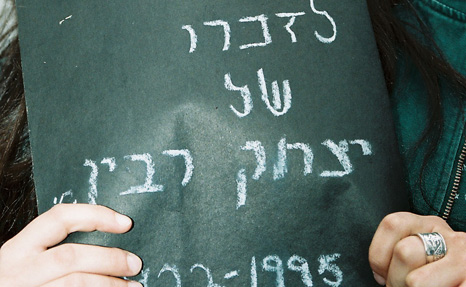 לזכרו
של
יצחק רבין
1995